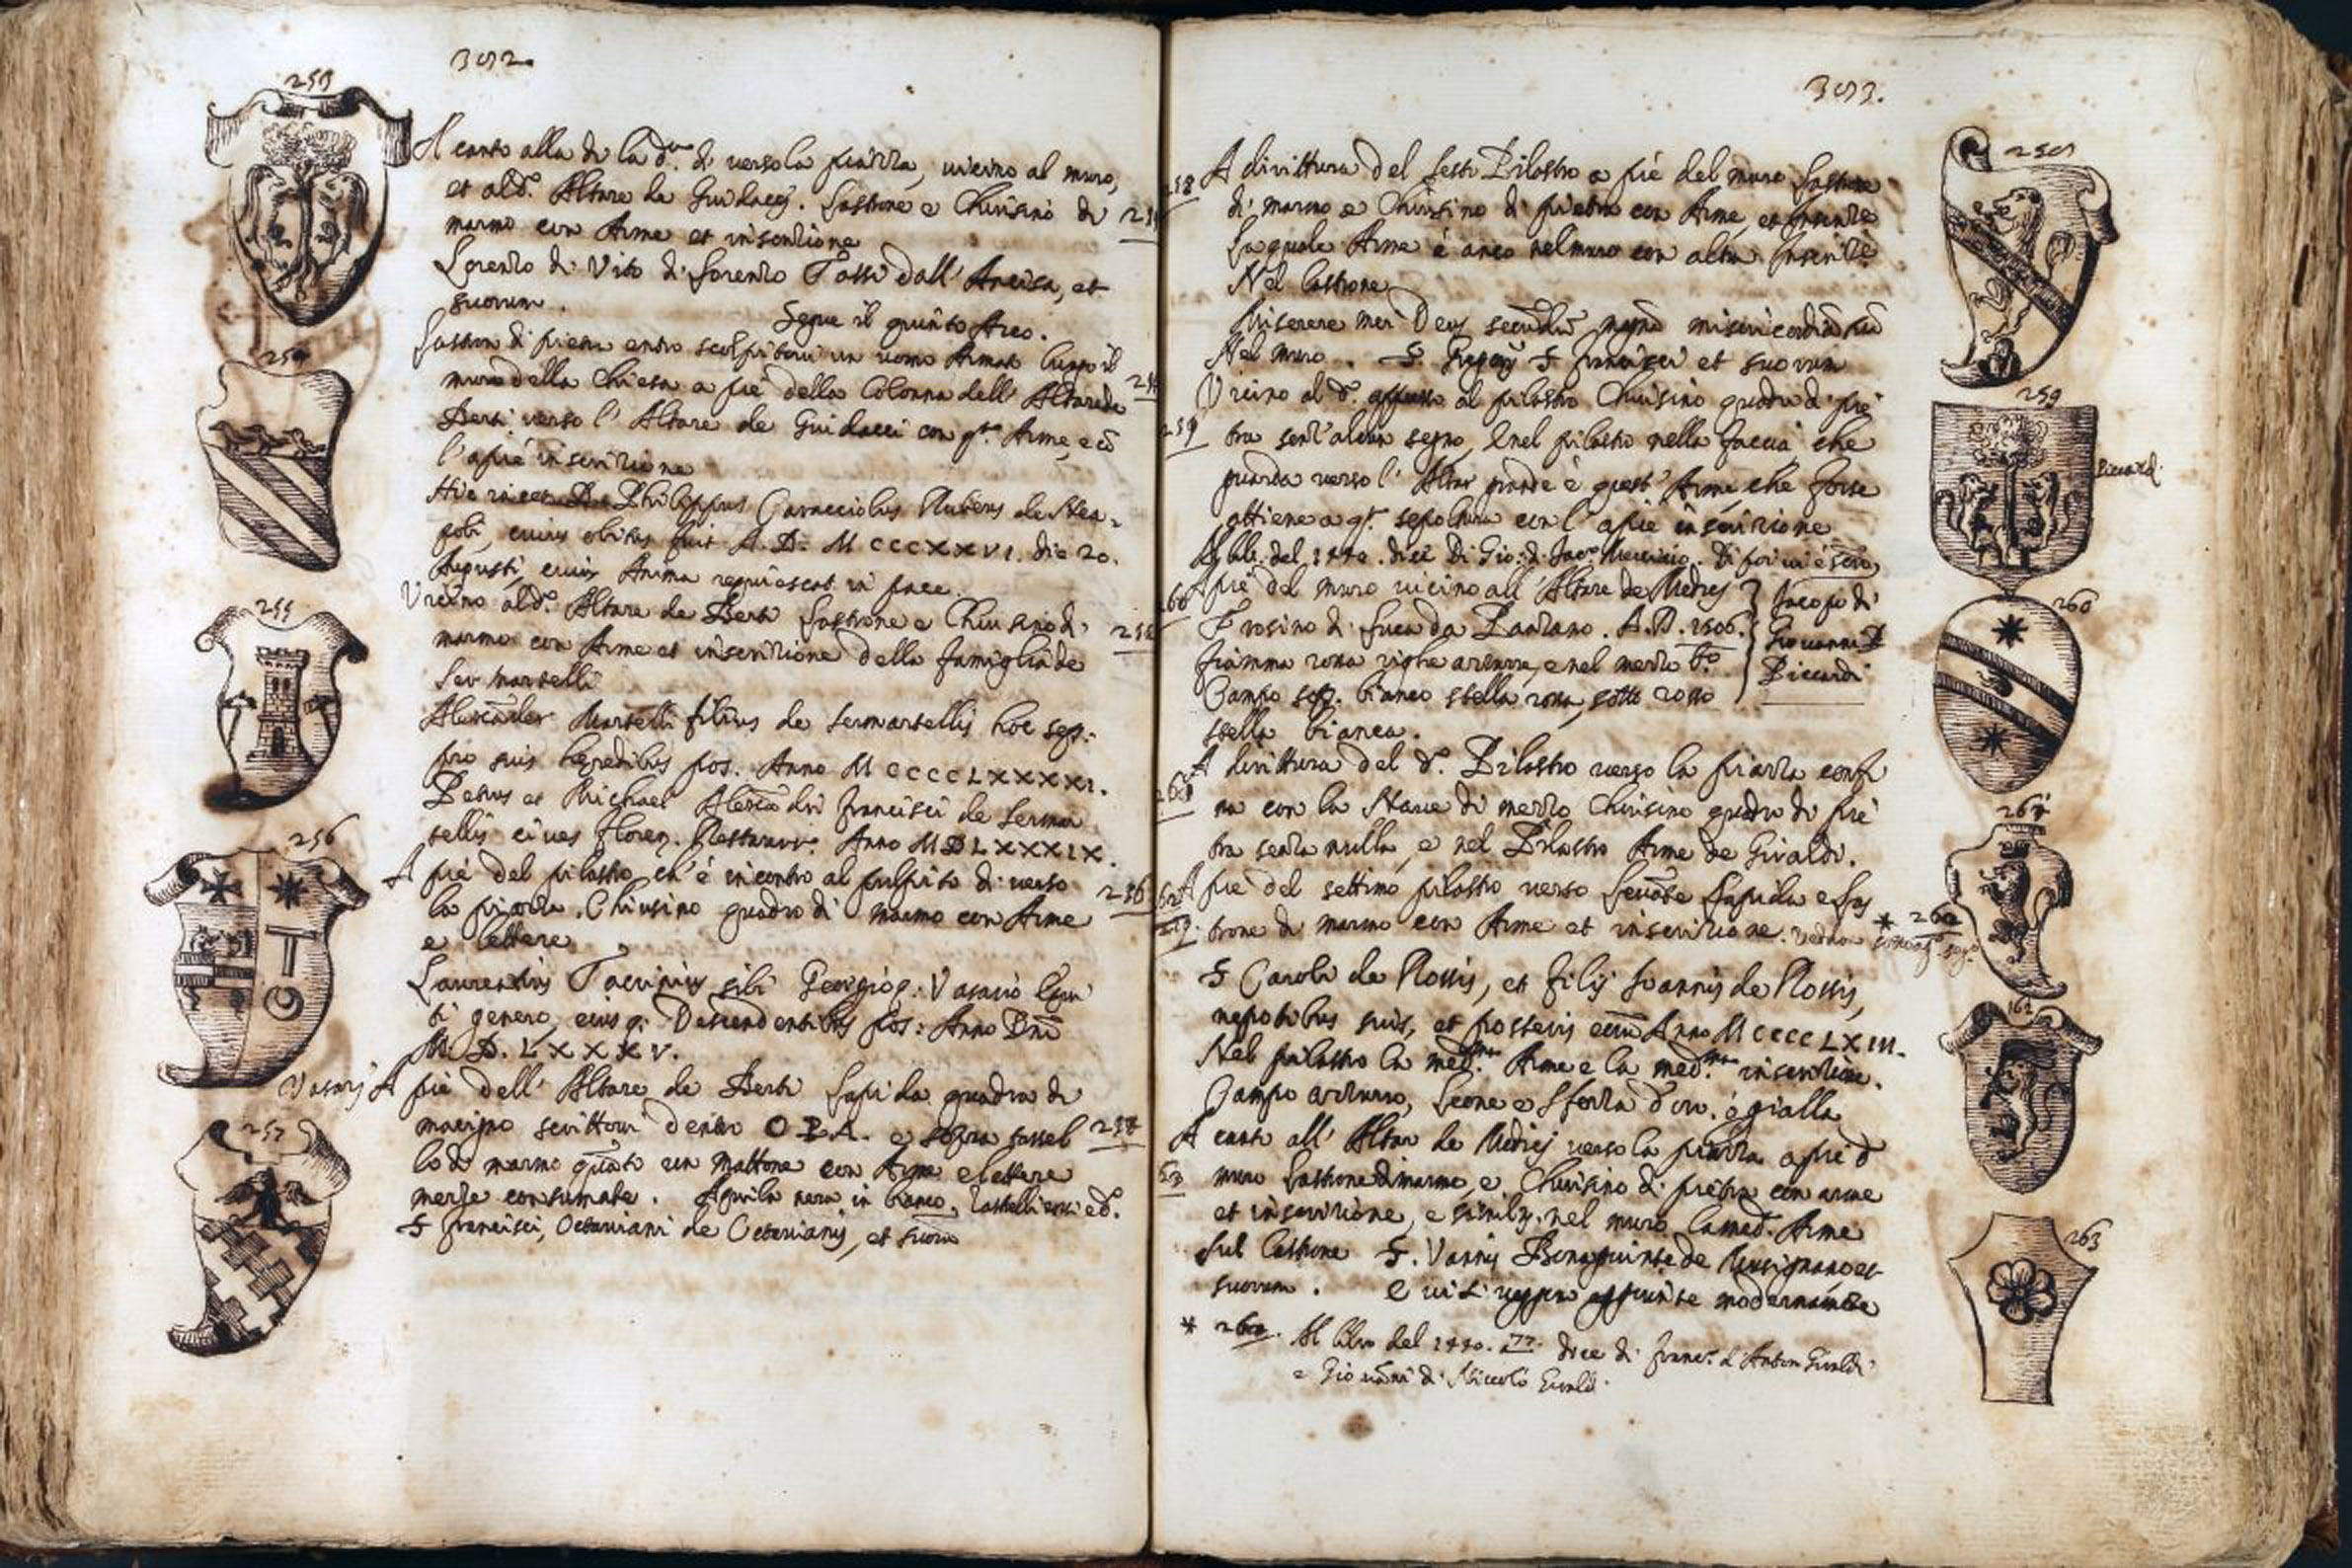 392.
253
A canto alla di la d.ᵃ di verso la piazza, vicino al muro,
et al d.º Altare da Guidacci. Lastrone e Chiusino di
marmo con Arme et inscrizione
Lorenzo di Vito di Lorenzo Tassi dall' Ancisa, et
suorum.
Segue il quinto Arco.
254
Lastron di pietra entro scolpitovi un uomo Armato lungo il
muro della Chiesa a piè della Colonna dell' Altare de
Berti verso l' Altare de Guidacci con q.ᵗᵃ Arme, e cō
l'apiè inscrizione
Hic iacet D. Philippus Caracciolus Rubeus de Nea-
poli, cuius obitus fuit A. D. M CCCXXVI. die 20.
Augusti, cuius Anima requiescat in pace.
255
Vicino al d.º Altare de Berti Lastrone e Chiusino di
marmo con Arme et inscrizione della famiglia de
Ser Martelli
Alexāder Martelli filius de Sermartellis hoc sep:
pro suis heredibus pos. Anno M CCCC LXXXXI.
Petrus et Michael Alexādri Francisci de Sermar
tellis cives Floren. Restaurr. Anno MDLXXXIX.
256
A piè del pilastro ch' è incontro al pulpito di verso
la piazza. Chiusino quadro di marmo con Arme
e lettere
Laurentius Taerinius sibi Georgio q: Vasario Equi
ti genero, eiusq: Descendentibus pos: Anno Dnī
M. D. LXXXV.
Vasarj
257
A piè dell' Altare de Berti Lapida quadra di
macigno scrittovi dentro O.P.A. e sopra tassel
lo di marmo quāto un mattone con Arme e lettere
mezze consumate. Aquila nera in bianco,
S Francisci, Octaviani de Octavianis, et suorū
393.
258
A dirittura del sesto Pilastro a piè del muro Lastrone
di marmo e Chiusino di pietra con Arme, et Inscrizᵉ
la quale Arme è anco nel muro con altra Inscrizᵉ
Nel lastrone
Miserere mei Deus secundū magnā misericordiā tuā
Nel muro. S. S Francisci et suorum
259
Vicino al d.º appresso al pilastro Chiusino quadro di pie
tra senz'alcun segno, e nel pilastro nella faccia, che
guarda verso l' Altar grande è quest' Arme, che forse
attiene a q.ᵗᵃ sepoltura con l' apiè inscrizione
Riccardi
Jacopo di
Giovanni
Riccardi
260
A piè del muro vicino all' Altare de Medicj
Frosino di Luca da Panzano. A.D. 1506.
fiamma rossa righe azzurre, e nel mezzo
Campo sop. bianco stella rossa, sotto rosso
stella bianca.
261
A dirittura del d.º Pilastro verso la piazza confi
na con la Nave di mezzo Chiusino quadro di pie
tra senza nulla, e nel Pilastro Arme de Giraldi.
262
A piè del settimo pilastro verso Levāte Lapida e Las
trone di marmo con Arme et inscrizione.
S Caroli de Rossis, et filij Joannis de Rossis,
nepotibus suis, et posteris eorū Anno M CCCC LXIII.
Nel pilastro la med.ᵐᵃ Arme e la med.ᵐᵃ inscrizione.
Campo azzurro, Leone e Sforza d'oro, ò gialla
263
A canto all' Altar de Medicj verso la piazza a piè d
muro Lastrone di marmo, e Chiusino di pietra con arme
et inscrizione, e simil.ᵗᵉ nel muro la med.ᵃ Arme
sul lastrone S. Vannis Bonagiunte de Rusignano et
suorum. E vi si veggon aggiunte modernamente
* 262. Al libro del 1440. 77. dice di Franc.º d'Anton Giraldi
e Giovāni di Niccolò Giraldi.